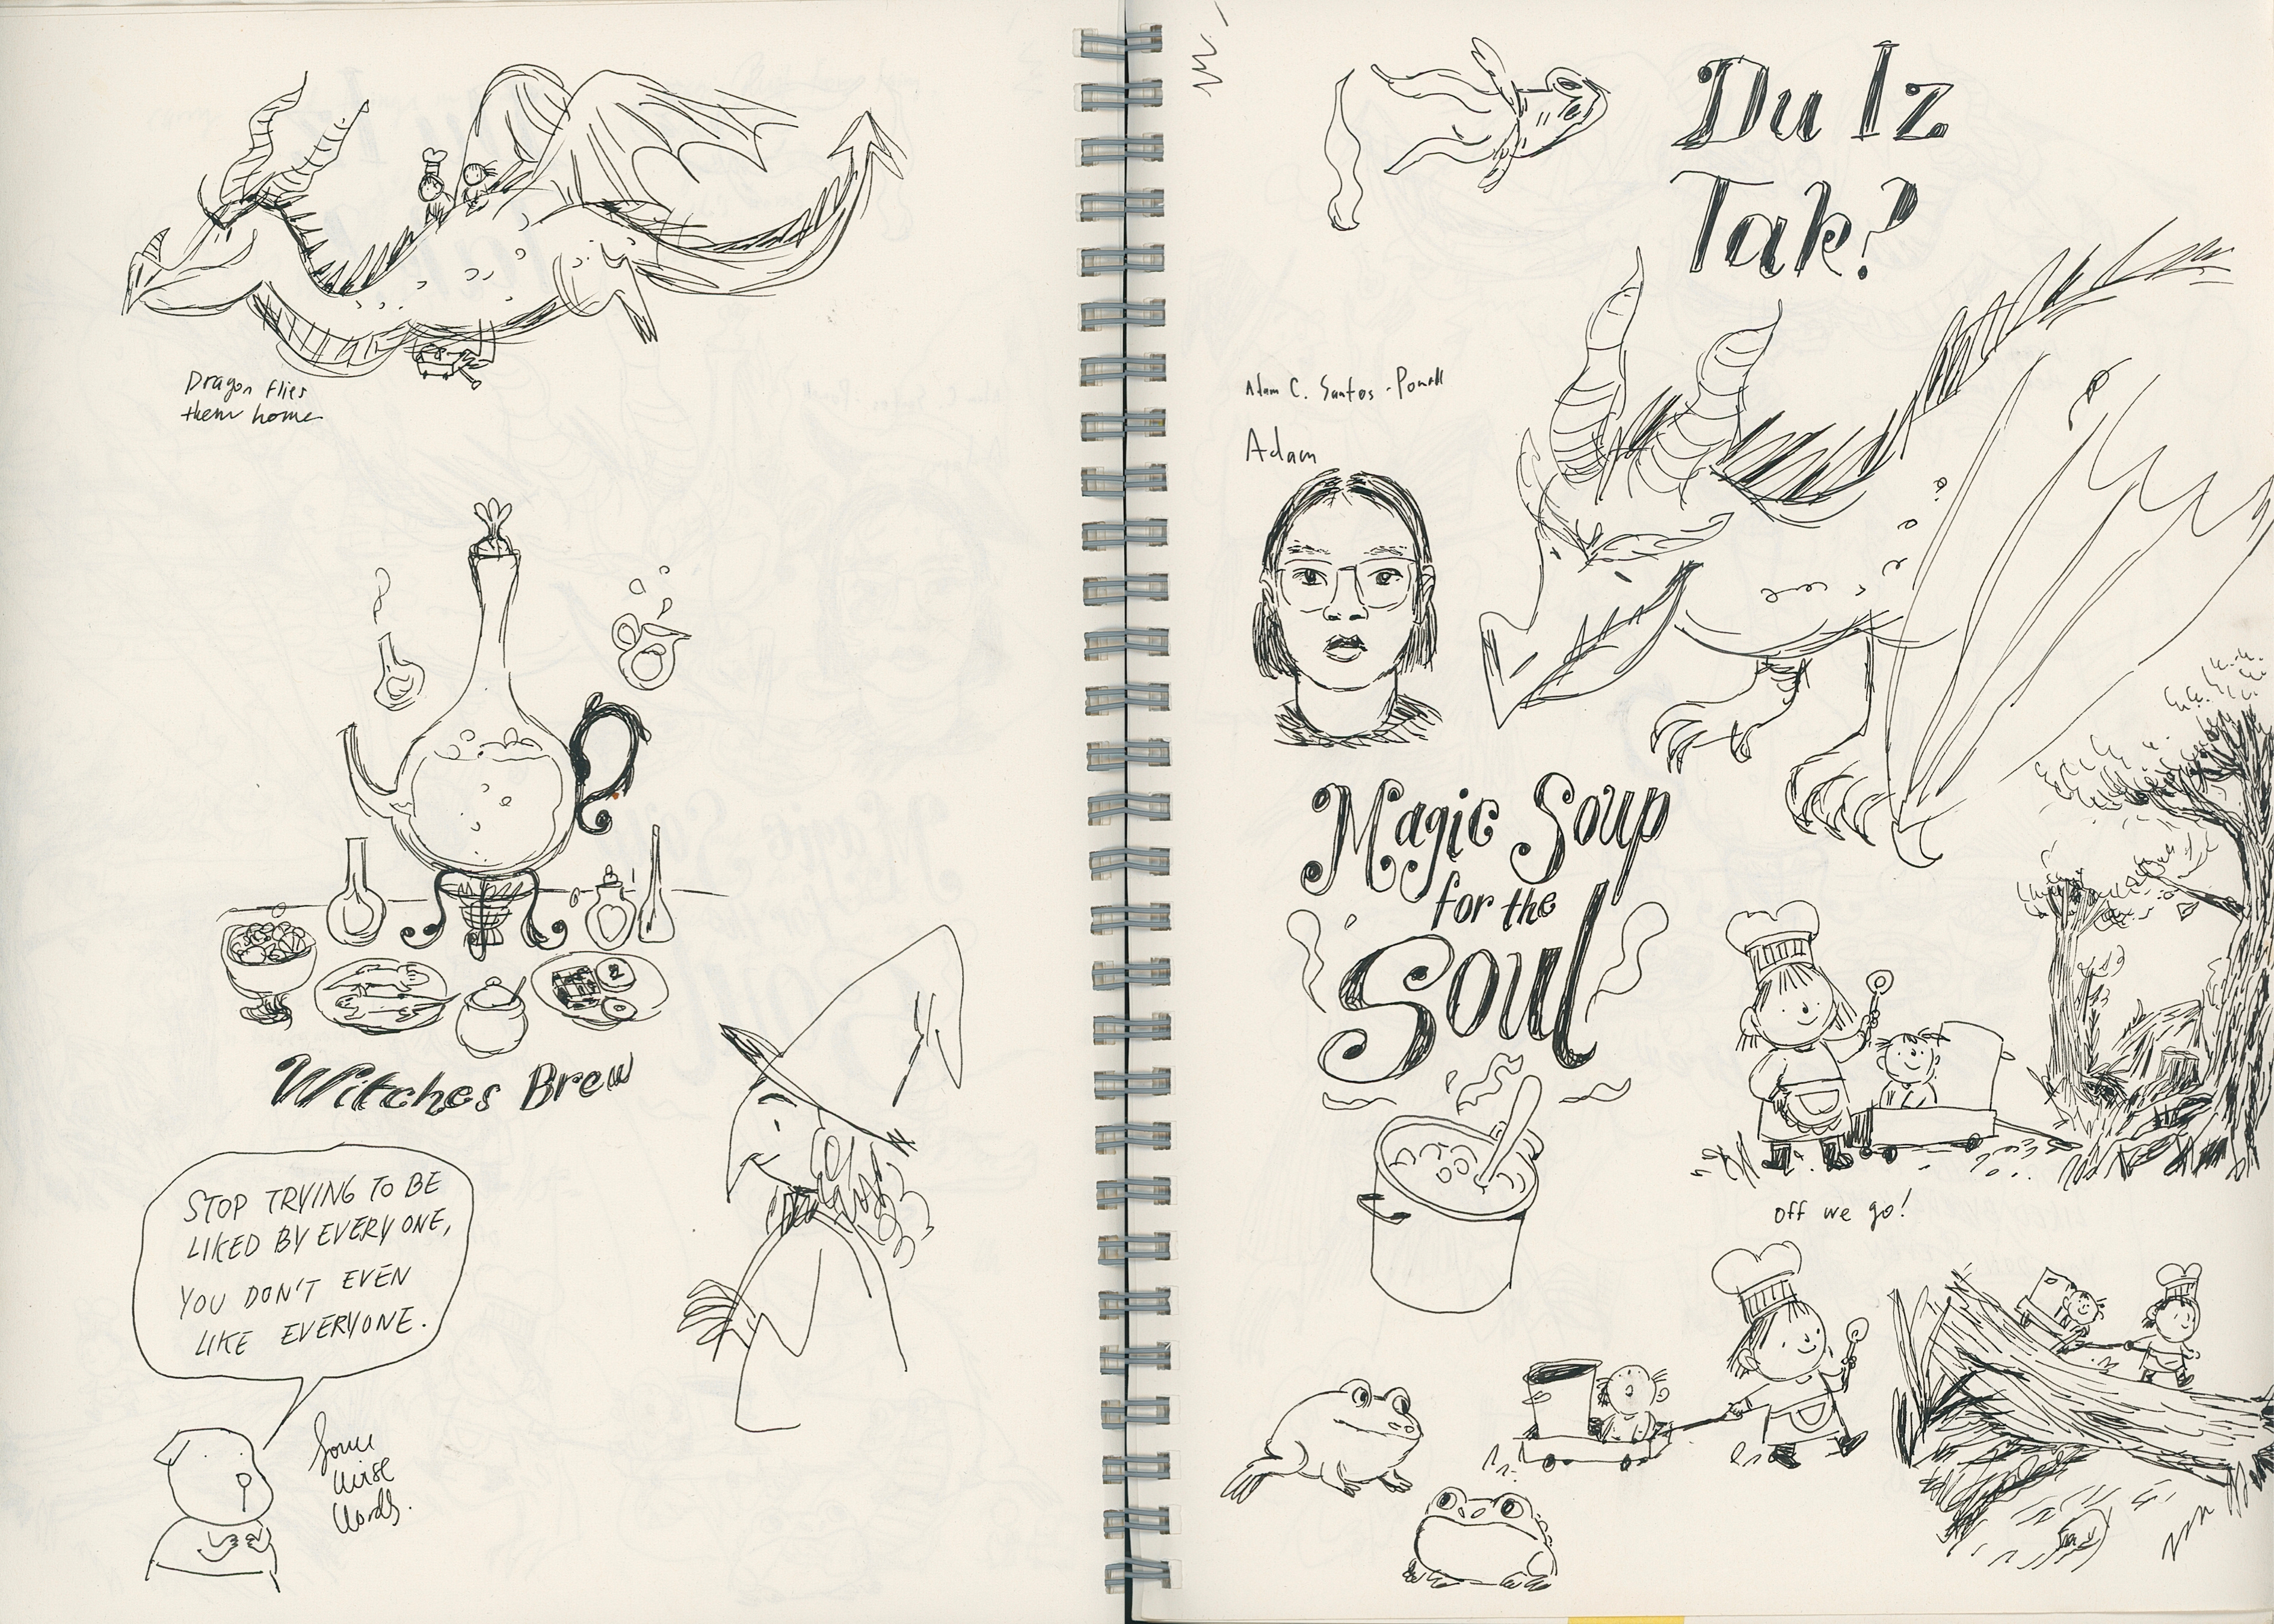 Dragon flies
them home
Witches Brew
STOP TRYING TO BE
LIKED BY EVERYONE,
YOU DON'T EVEN
LIKE EVERYONE.
Some
wise
words.
Du Iz
Tak?
Adam C. Santos-Powell
Adam
Magic Soup
for the
Soul
off we go!